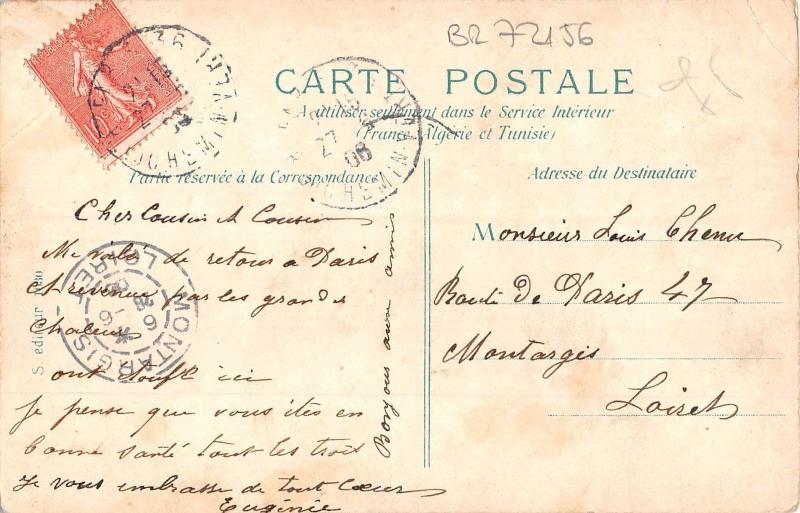 BR 72156
CARTE POSTALE
A utiliser seulement dans le Service Intérieur
(France, Algérie et Tunisie)
Partie réservée à la Correspondance
Adresse du Destinataire
Cher Cousin et Cousine
Me voilà de retour a Paris
et revenue par les grandes
Chaleurs
ont souft ici
Je pense que vous êtes en
bonne santé tout les trois
Je vous embrasse de tout Cœur
Eugénie
Bonjour aux amis
Monsieur Louis Chenu
Route De Paris 47
Montargis
Loiret
S. editeur
MONTARGIS
LOIRET
27
06